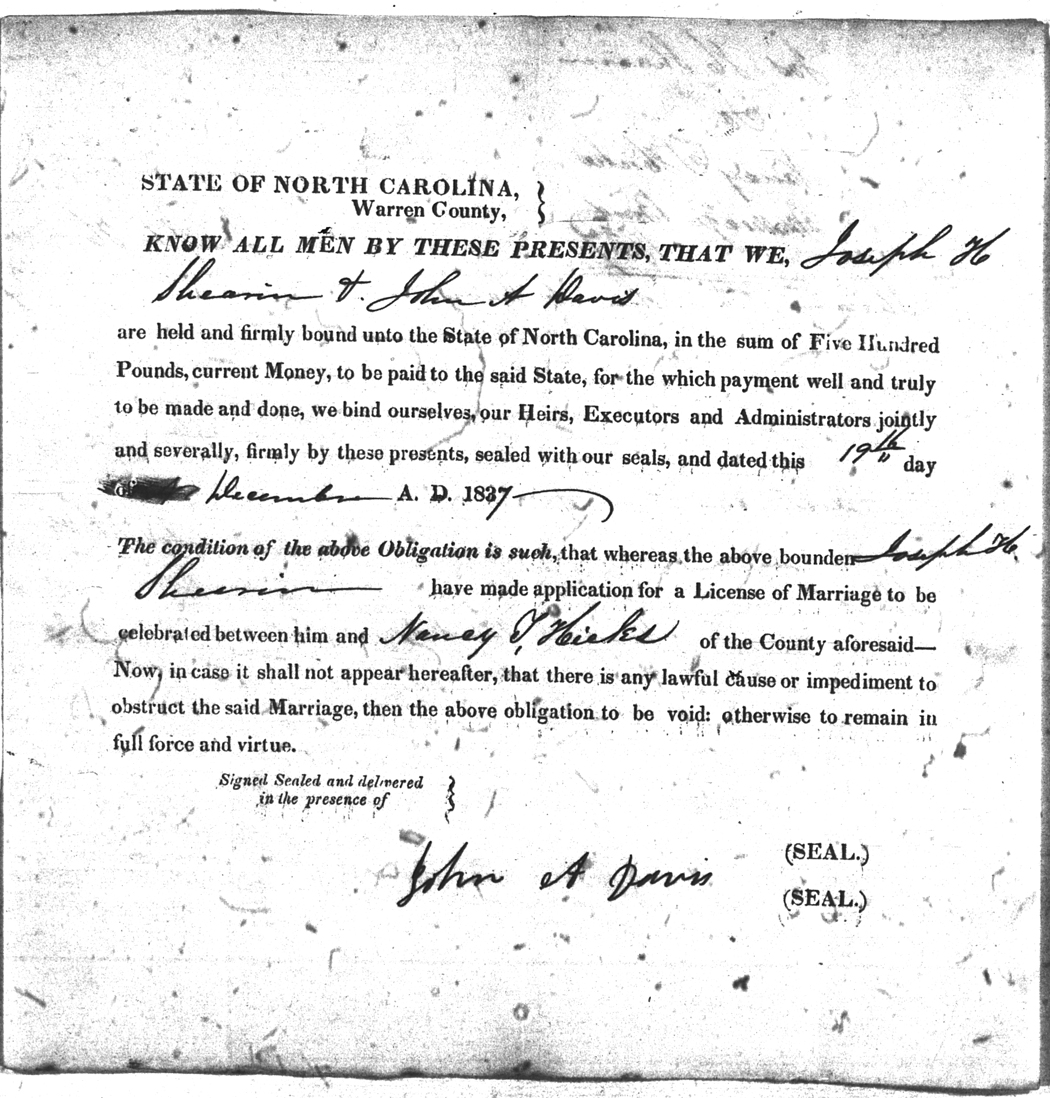 STATE OF NORTH CAROLINA,
Warren County,
KNOW ALL MEN BY THESE PRESENTS, THAT WE, Joseph H
Shearin & John A Davis
are held and firmly bound unto the State of North Carolina, in the sum of Five Hundred
Pounds, current Money, to be paid to the said State, for the which payment well and truly
to be made and done, we bind ourselves, our Heirs, Executors and Administrators jointly
and severally, firmly by these presents, sealed with our seals, and dated this 19th day
of December A. D. 1837
The condition of the above Obligation is such, that whereas the above bounden Joseph H.
Shearin have made application for a License of Marriage to be
celebrated between him and Nancy T, Hicks of the County aforesaid—
Now, in case it shall not appear hereafter, that there is any lawful cause or impediment to
obstruct the said Marriage, then the above obligation to be void: otherwise to remain in
full force and virtue.
Signed Sealed and delivered
in the presence of
(SEAL.)
John A Davis
(SEAL.)